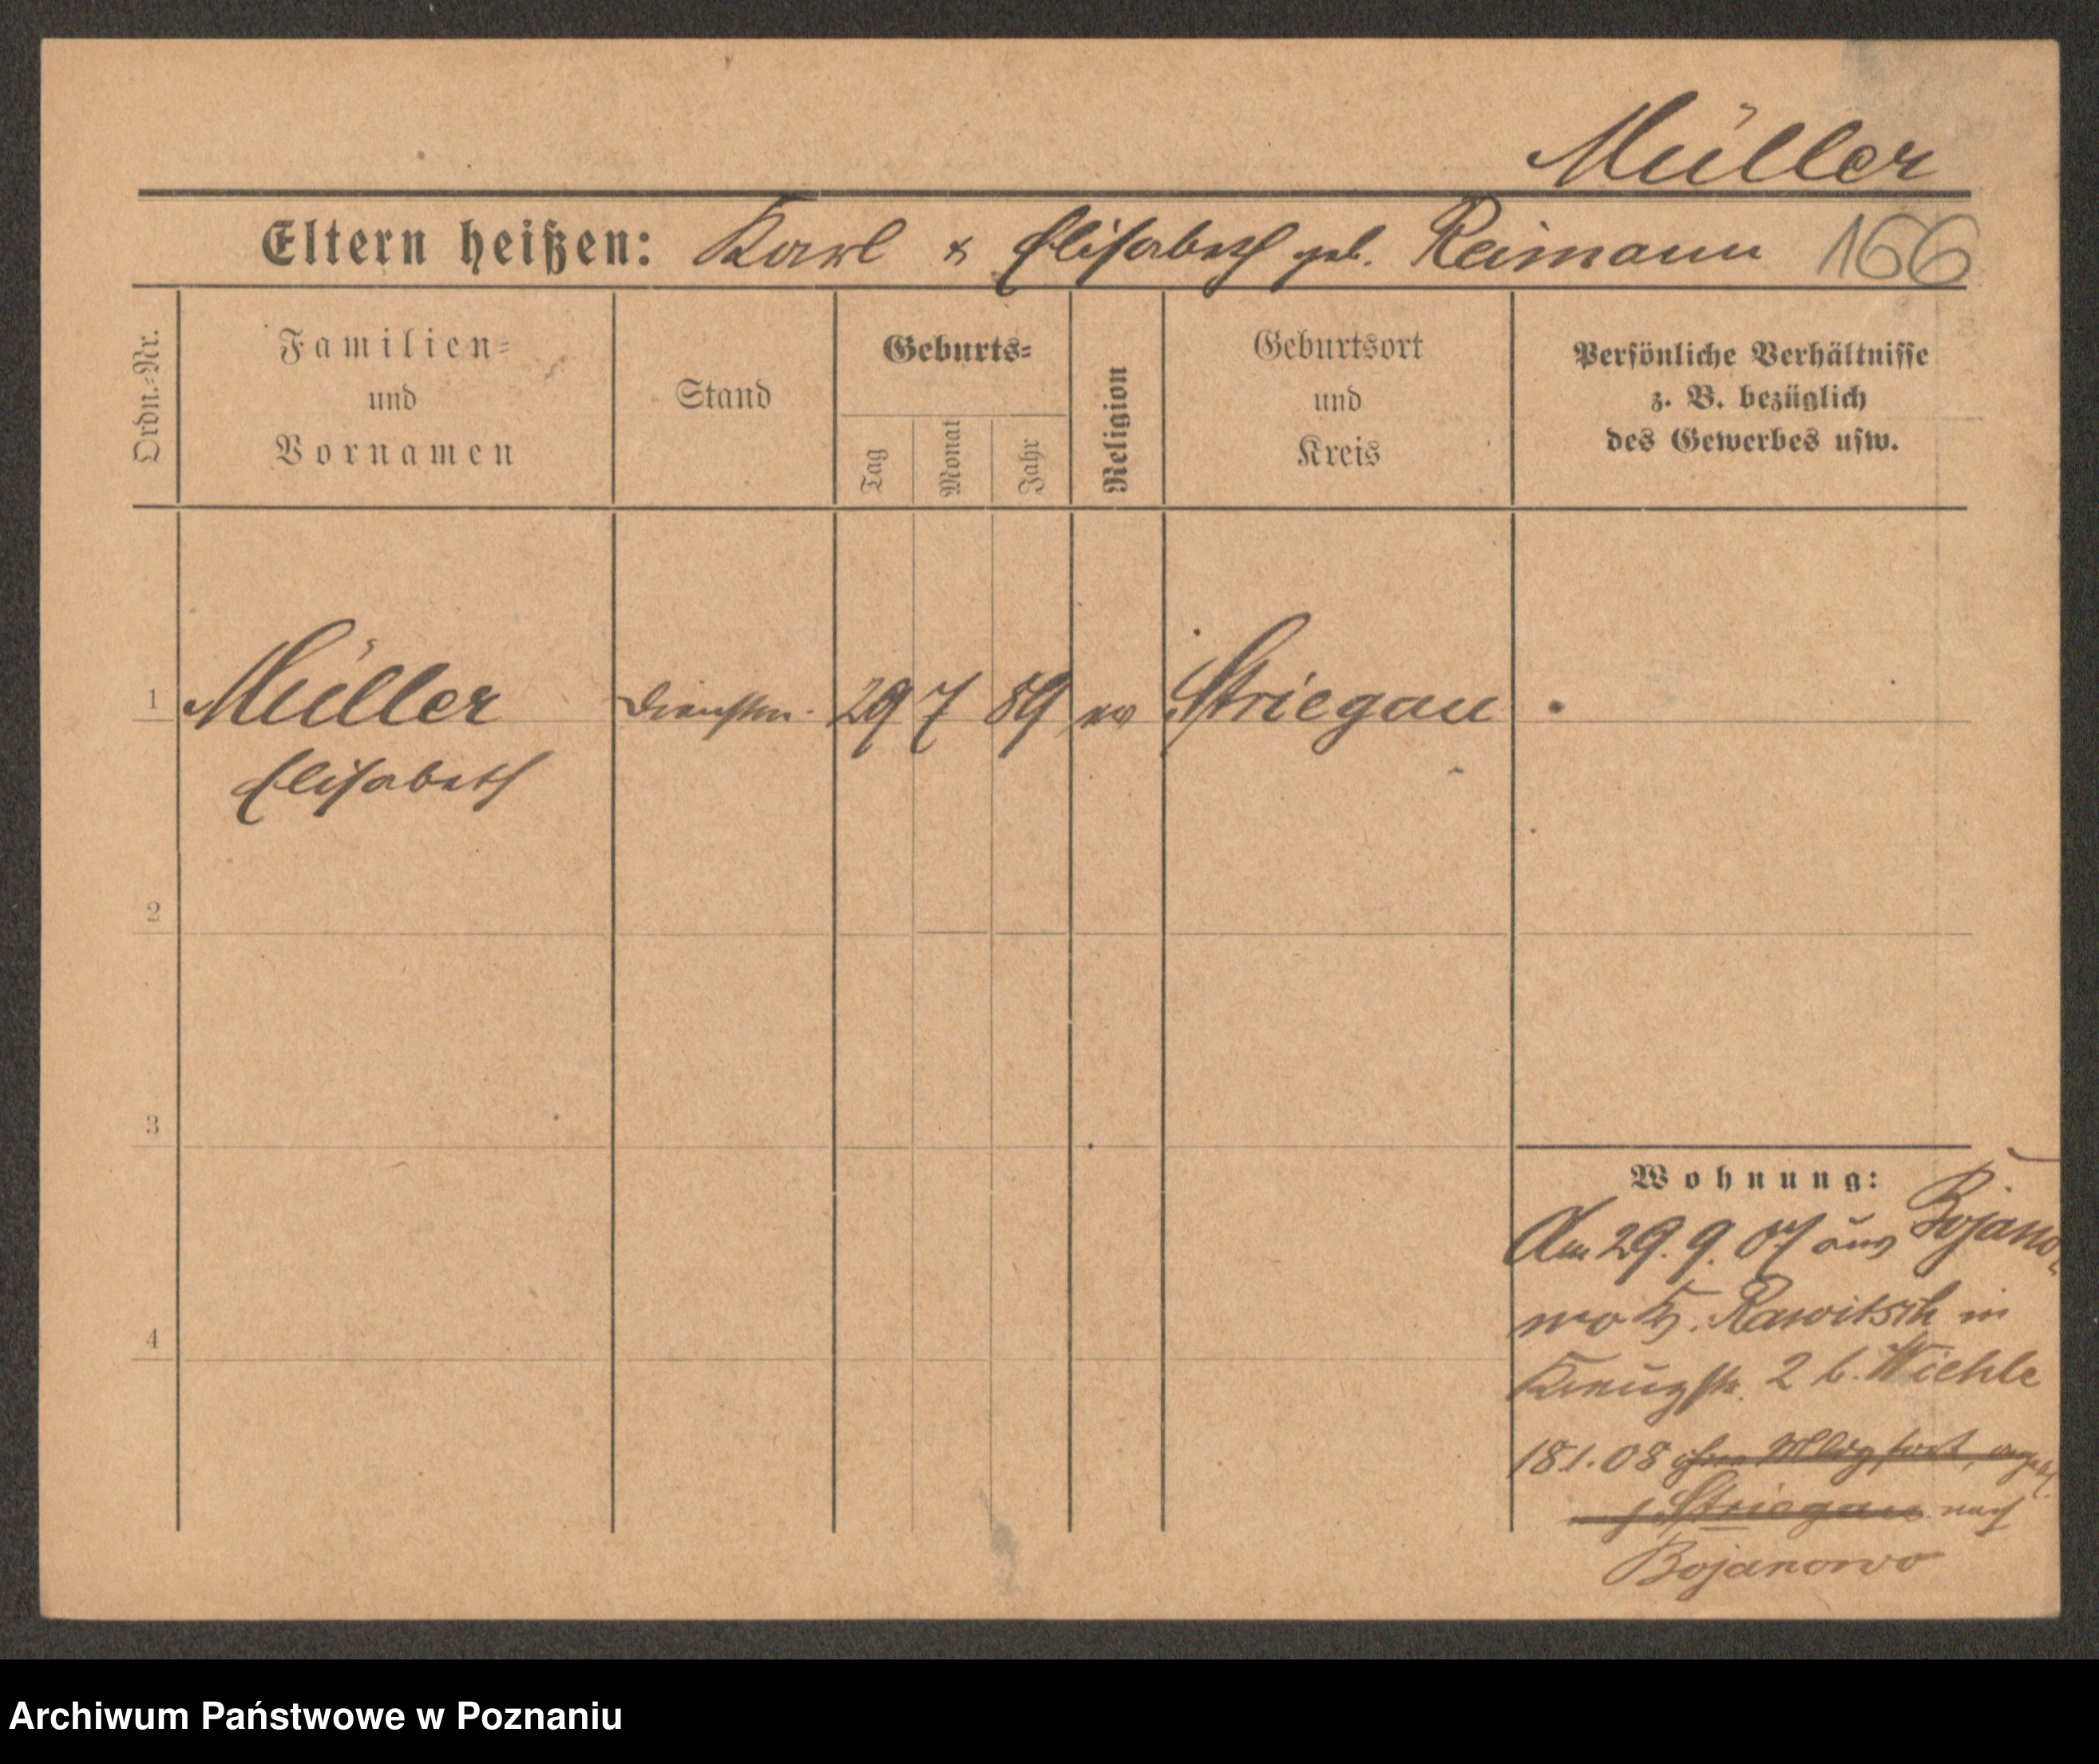 Müller
Eltern heißen: Karl & Elisabeth geb. Reimann 166
Ordn.-Nr.
Familien-
und
Vornamen
Stand
Geburts-
Tag
Monat
Jahr
Religion
Geburtsort
und
Kreis
Persönliche Verhältnisse
z. B. bezüglich
des Gewerbes usw.
1 Müller Dienstm. 29 7 89 ev Striegau
Elisabeth
2
3
4
Wohnung:
Am 29.9.07 aus Bojano-
wo Kr. Rawitsch in
Kreuzstr. 2 b. Wiehle
18.1.08 ohne fort,
Striegau nach
Bojanowo
Archiwum Państwowe w Poznaniu